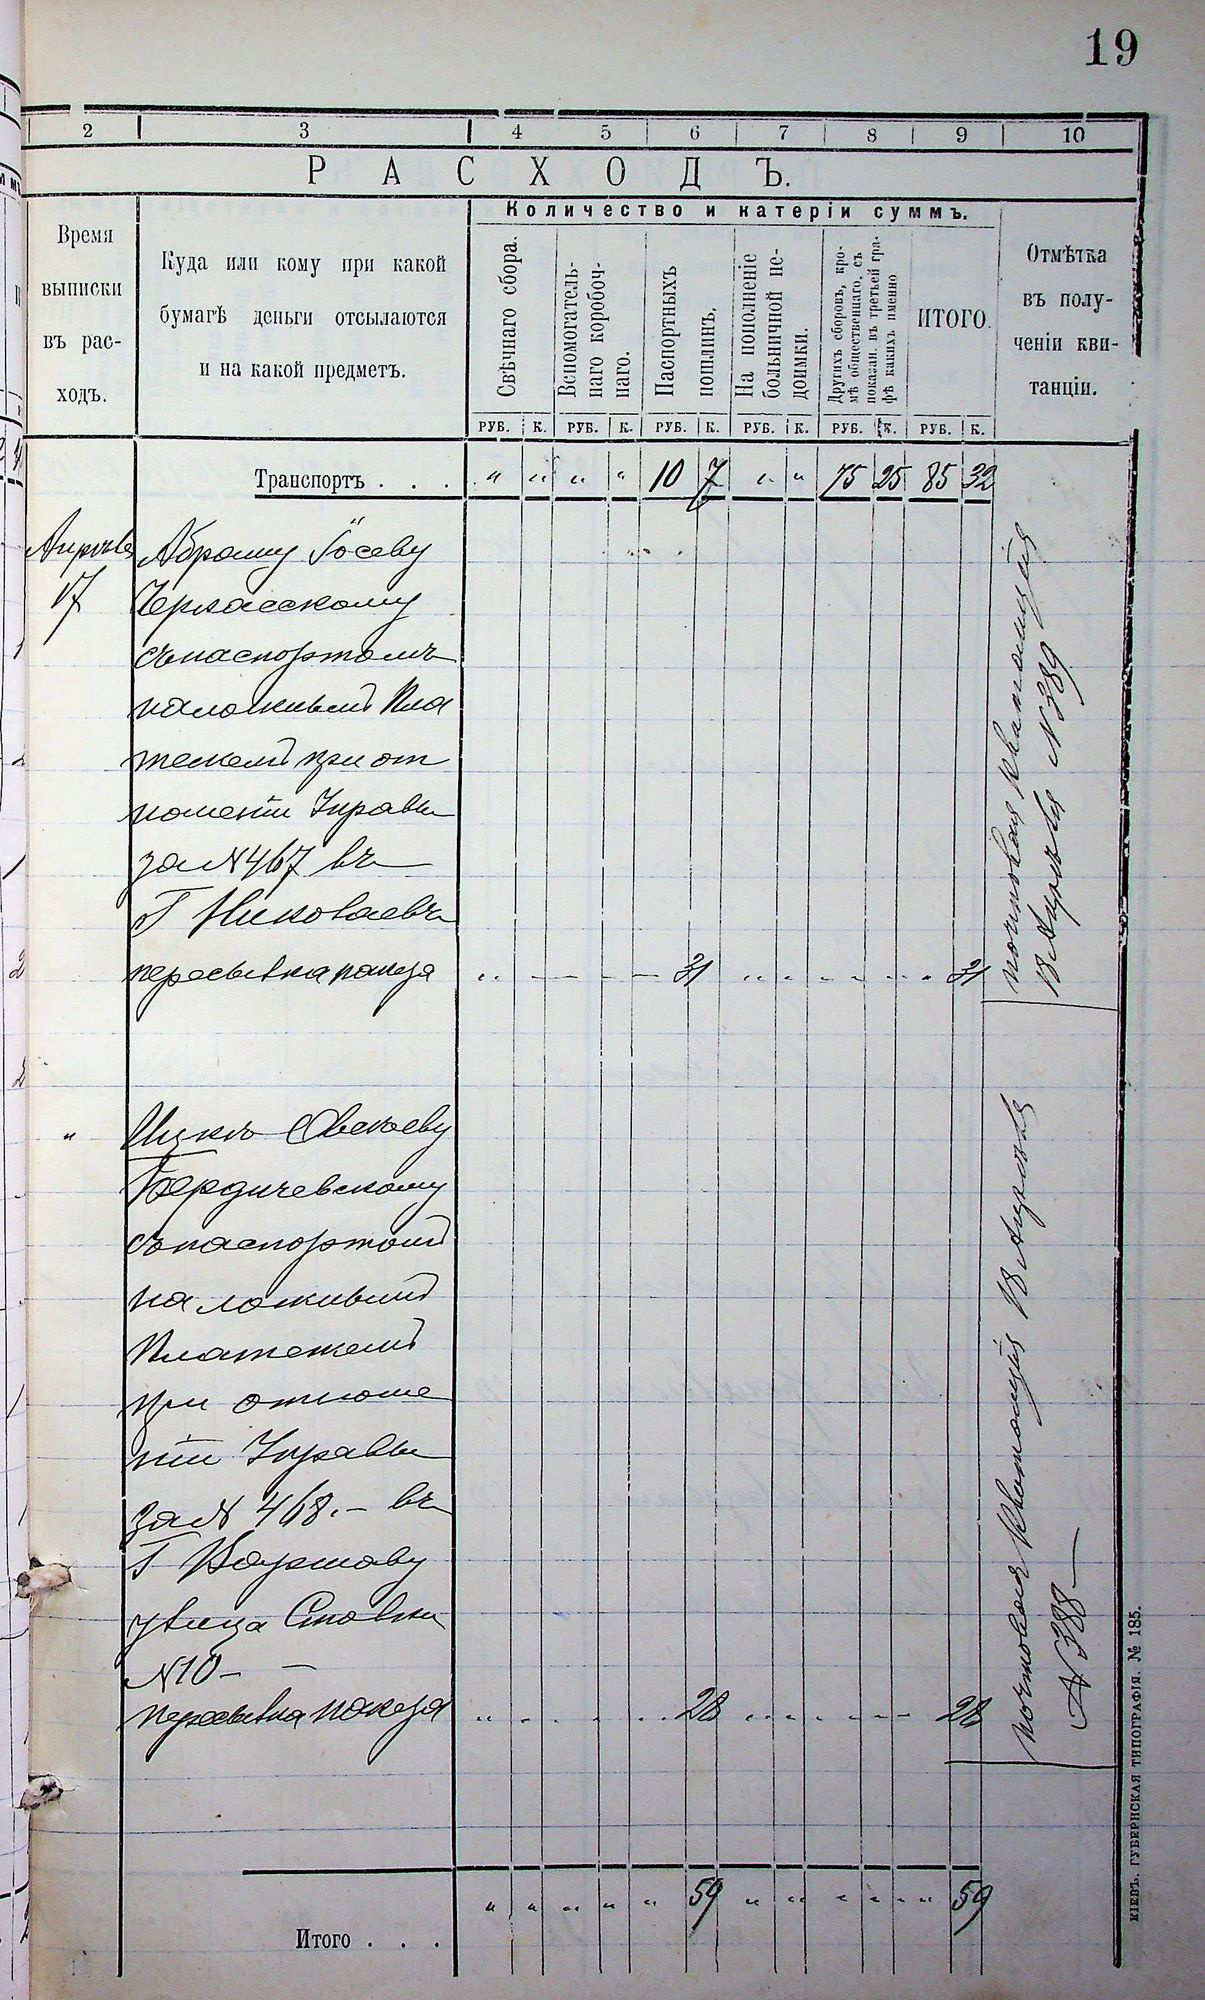 19
2 3 4 5 6 7 8 9 10
РАСХОДЪ.
Время
выписки
въ рас-
ходъ.
Куда или кому при какой
бумагѣ деньги отсылаются
и на какой предметъ.
Количество и катеріи суммъ.
Свѣчнаго сбора.
Вспомогатель-
наго коробоч-
наго.
Паспортныхъ
пошлинъ.
На пополненіе
больничной не-
доимки.
Другихъ сборовъ, кро-
мѣ общественнаго, съ
показан. въ третьей гра-
фѣ какихъ именно
ИТОГО.
Отмѣтка
въ полу-
ченіи кви-
танціи.
РУБ. К. РУБ. К. РУБ. К. РУБ. К. РУБ. К. РУБ. К.
Транспортъ . . . „ „ „ „ 10 7 „ „ 75 25 85 32
Апрѣля Абраму Іосеву
17 Черкасскому
съ паспортомъ
наложнымъ Пла
тежемъ при от
ношеніи Управы
за № 467 въ
Г Николаевъ
пересылка пакета 31 31
почтовая квитанція
18 Апрѣля № 389
„ Ицкѣ Овсѣеву
Бердичевскому
съ паспортомъ
на ложнымъ
Платежемъ
при отноше
ніи Управы
за № 468. – въ
Г Варшаву
улица Ставки
№ 10 –
пересылка пакета 28 28
почтовая квитанція 18 Апрѣля
№ 388 –
Итого . . . „ „ „ „ „ 59 „ „ „ „ „ 59
КІЕВЪ. ГУБЕРНСКАЯ ТИПОГРАФІЯ. № 185.